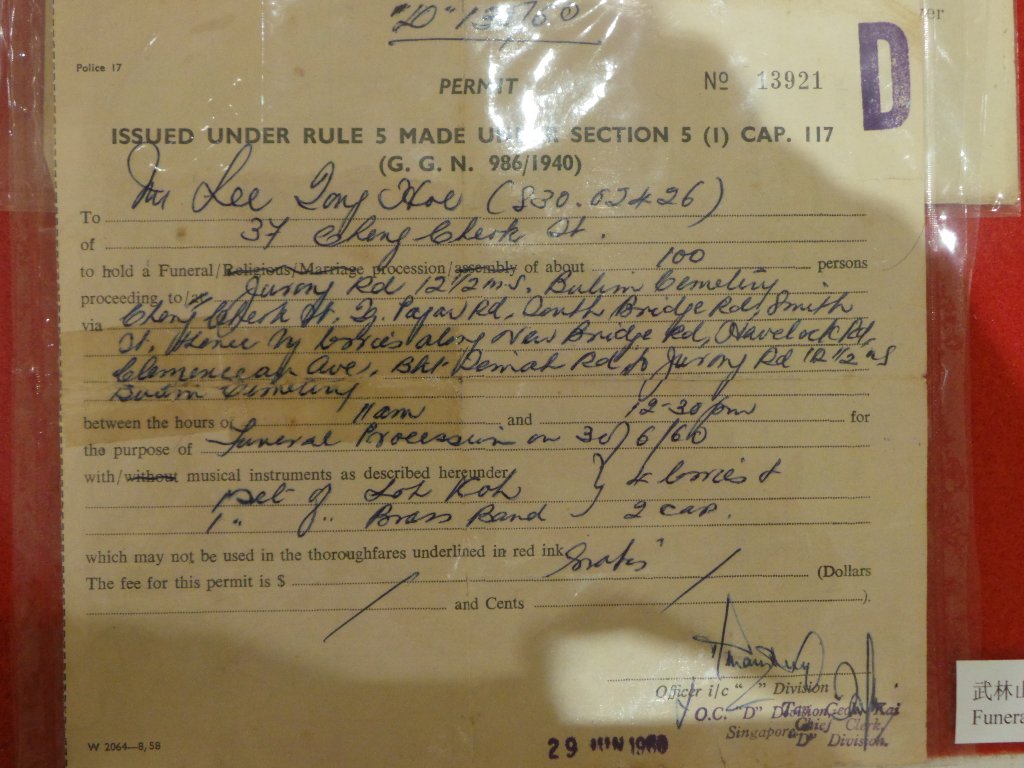 Police 17
D
PERMIT No 13921
ISSUED UNDER RULE 5 MADE UNDER SECTION 5 (1) CAP. 117
(G. G. N. 986/1940)
To Mr Lee Tong Hoe (S30.02426)
of 37 Cheng Cheok St.
to hold a Funeral/Religious/Marriage procession/assembly of about 100 persons
proceeding to/at Jurong Rd 12 1/2 ms. Bulim Cemetery
via Cheng Cheok St, Tg. Pagar Rd, South Bridge Rd, Smith
St, thence by lorries along New Bridge Rd, Havelock Rd,
Clemenceau Ave, Bkt Demah Rd to Jurong Rd 12 1/2 ms
Bulim Cemetery
between the hours of 11am and 12-30pm for
the purpose of Funeral Procession on 30/6/60
with/without musical instruments as described hereunder
1 set of Loh Koh } 4 lorries &
1 " " Brass Band 2 cap.
which may not be used in the thoroughfares underlined in red ink
The fee for this permit is $ Gratis (Dollars
and Cents ).
Officer i/c " " Division
O.C. "D" Division,
Singapore
Chief Clerk,
"D" Division.
W 2064—8,58
29 JUN 1960
武林山
Funera